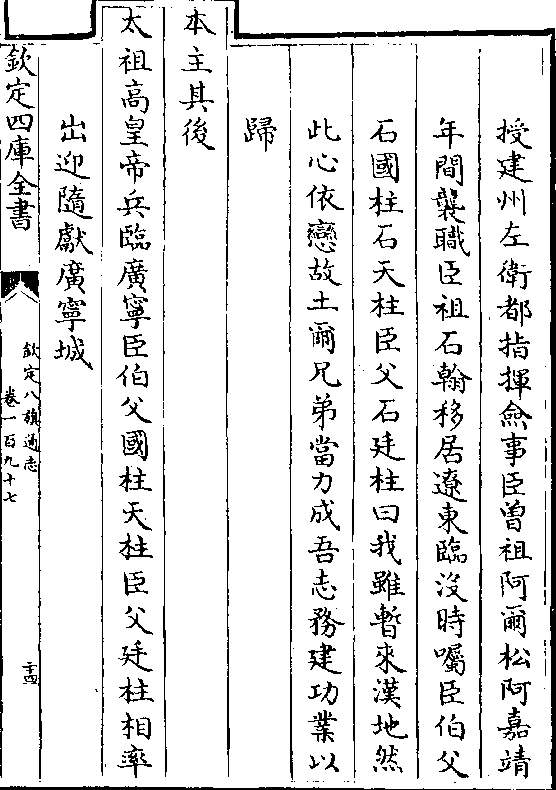 授建州左衛都指揮僉事臣曾祖阿爾松阿嘉靖
年間襲職臣祖石翰移居遼東臨没時囑臣伯父
石國柱石天柱臣父石廷柱曰我雖暫來漢地然
此心依戀故土爾兄弟當力成吾志務建功業以
歸
本主其後
太祖高皇帝兵臨廣寧臣伯父國柱天柱臣父廷柱相率
出迎隨獻廣寧城
欽定四庫全書
欽定八旗通志
卷一百九十七
十四